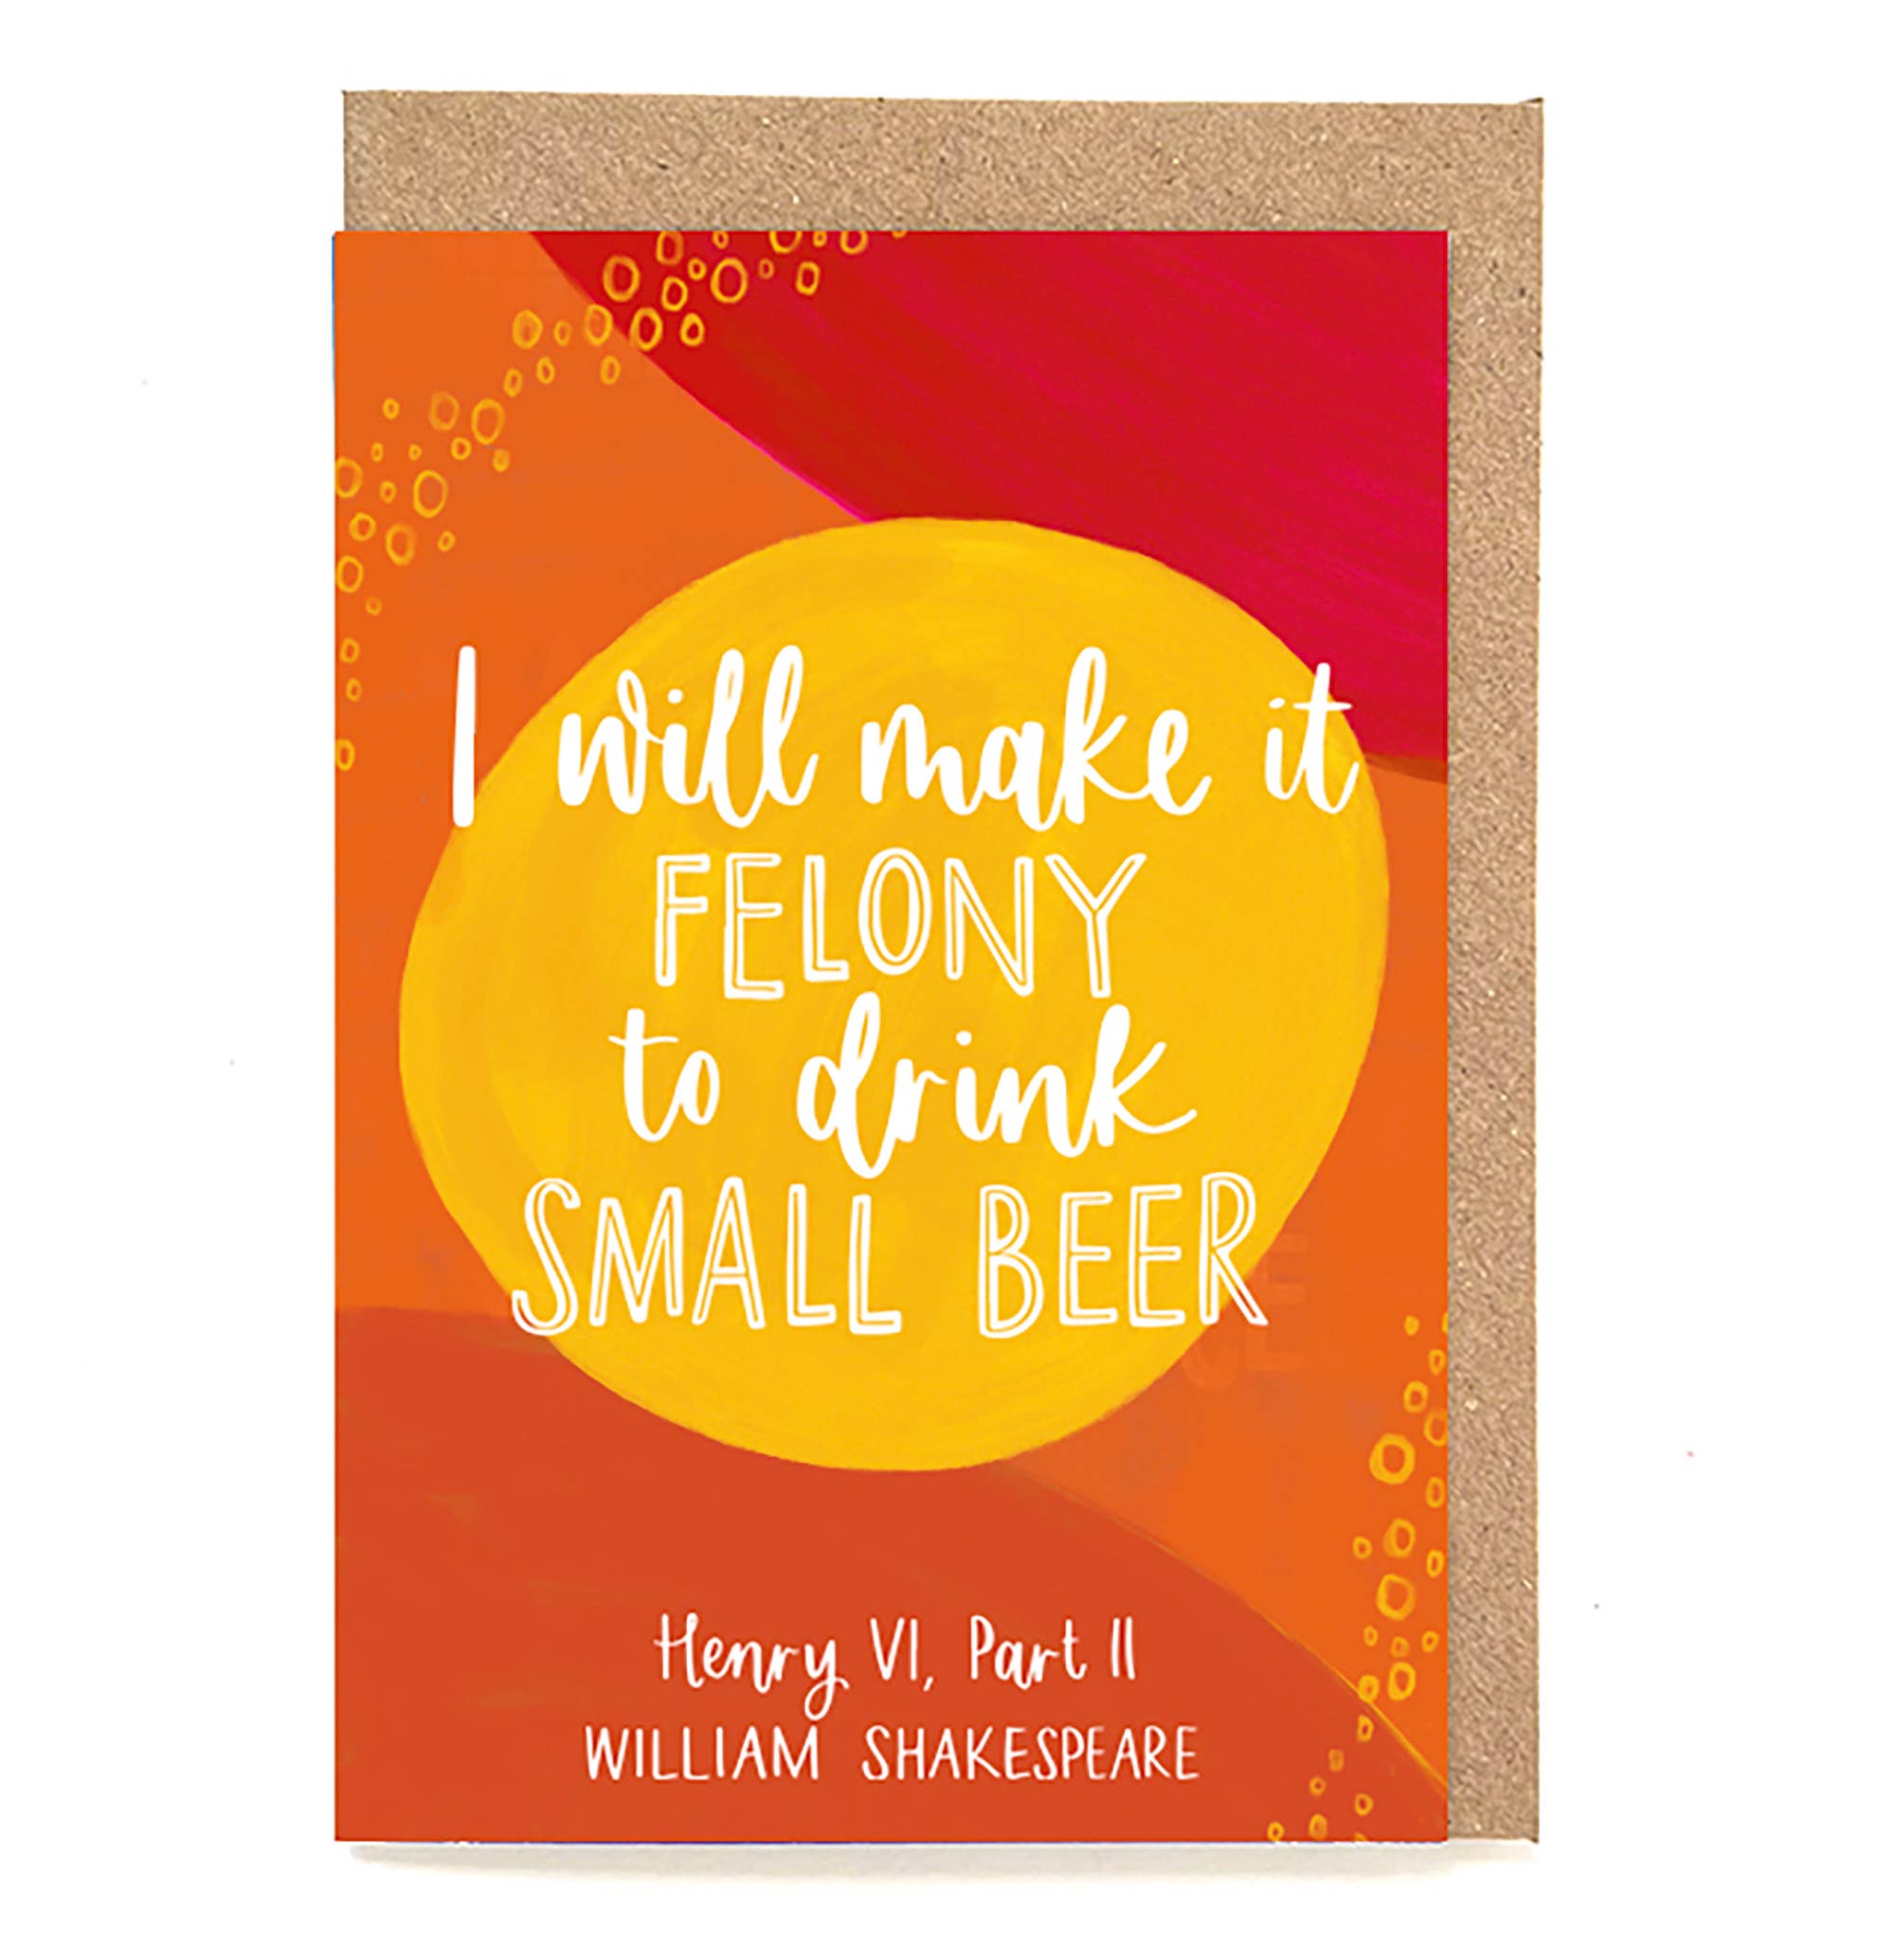 I will make it
FELONY
to drink
SMALL BEER
Henry VI, Part II
WILLIAM SHAKESPEARE